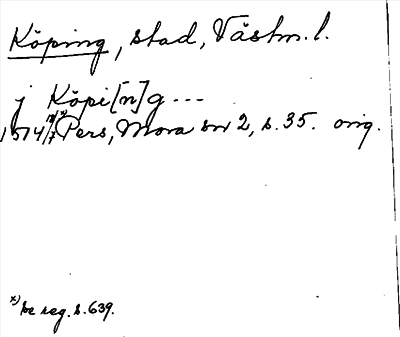 Köping, stad, Västm. l.
j Köpi[n]g ...
1514 Pers, Mora sn 2, s. 35. orig.
x) se reg. s. 639.